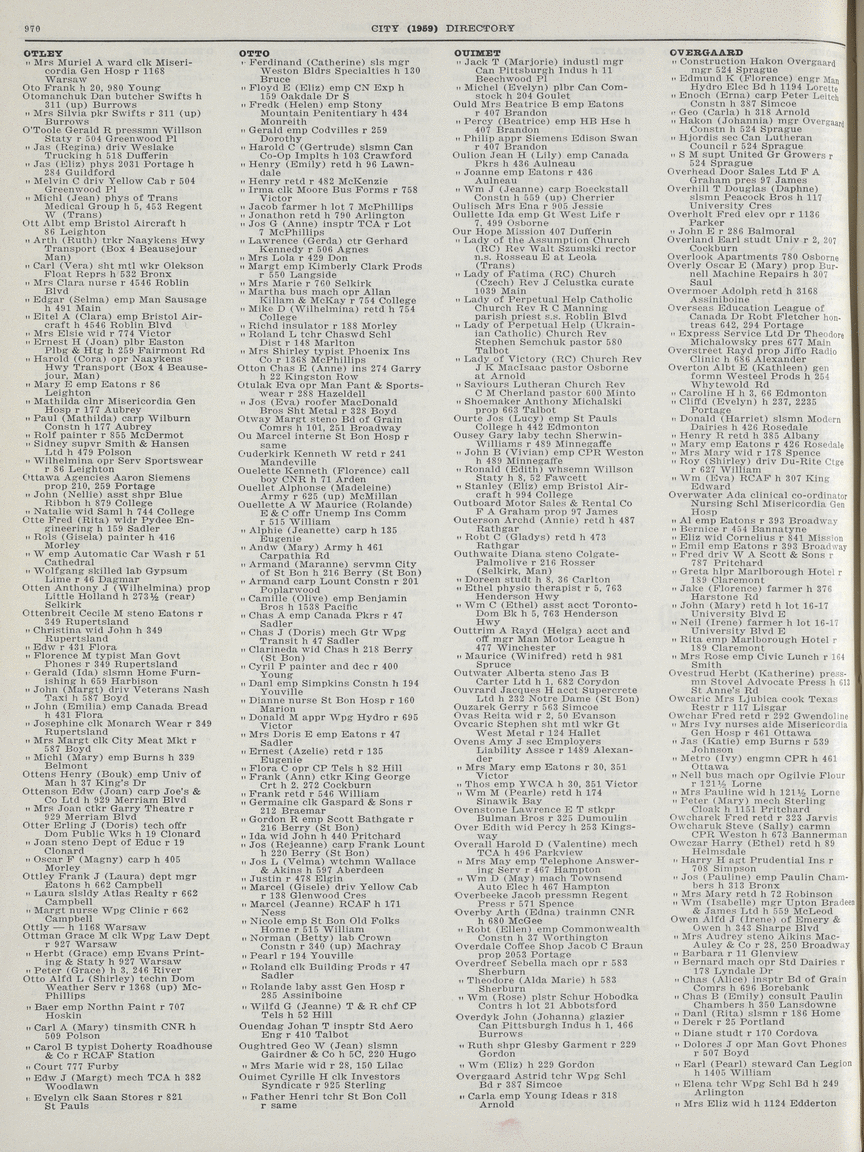 970
CITY (1959) DIRECTORY
OTLEY
" Mrs Muriel A ward clk Miseri-
cordia Gen Hosp r 1168
Warsaw
Oto Frank h 20, 980 Young
Otomanchuk Dan butcher Swifts h
311 (up) Burrows
" Mrs Silvia pkr Swifts r 311 (up)
Burrows
O'Toole Gerald R pressmn Willson
Staty r 504 Greenwood Pl
" Jas (Regina) driv Weslake
Trucking h 518 Dufferin
" Jas (Eliz) phys 2031 Portage h
284 Guildford
" Melvin C driv Yellow Cab r 504
Greenwood Pl
" Michl (Jean) phys of Trans
Medical Group h 5, 453 Regent
W (Trans)
Ott Albt emp Bristol Aircraft h
86 Leighton
" Arth (Ruth) trkr Naaykens Hwy
Transport (Box 4 Beausejour
Man)
" Carl (Vera) sht mtl wkr Olekson
Float Reprs h 522 Bronx
" Mrs Clara nurse r 4546 Roblin
Blvd
" Edgar (Selma) emp Man Sausage
h 491 Main
" Eitel A (Clara) emp Bristol Air-
craft h 4546 Roblin Blvd
" Mrs Elsie wid r 774 Victor
" Ernest H (Joan) plbr Easton
Plbg & Htg h 259 Fairmont Rd
" Harold (Cora) opr Naaykens
Hwy Transport (Box 4 Beause-
jour, Man)
" Mary E emp Eatons r 86
Leighton
" Mathilda clnr Misericordia Gen
Hosp r 177 Aubrey
" Paul (Mathilda) carp Wilburn
Constn h 177 Aubrey
" Rolf painter r 855 McDermot
" Sidney supvr Smith & Hansen
Ltd h 479 Polson
" Wilhelmina opr Serv Sportswear
r 86 Leighton
Ottawa Agencies Aaron Siemens
prop 210, 259 Portage
" John (Nellie) asst shpr Blue
Ribbon h 879 College
" Natalie wid Saml h 744 College
Otte Fred (Rita) wldr Pydee En-
gineering h 159 Sadler
" Rols (Gisela) painter h 416
Morley
" W emp Automatic Car Wash r 51
Cathedral
" Wolfgang skilled lab Gypsum
Lime r 46 Dagmar
Otten Anthony J (Wilhelmina) prop
Little Holland h 273½ (rear)
Selkirk
Ottenbreit Cecile M steno Eatons r
349 Rupertsland
" Christina wid John h 349
Rupertsland
" Edw r 431 Flora
" Florence M typist Man Govt
Phones r 349 Rupertsland
" Gerald (Ida) slsmn Home Furn-
ishing h 659 Harbison
" John (Margt) driv Veterans Nash
Taxi h 587 Boyd
" John (Emilia) emp Canada Bread
h 431 Flora
" Josephine clk Monarch Wear r 349
Rupertsland
" Mrs Margt clk City Meat Mkt r
587 Boyd
" Michl (Mary) emp Burns h 339
Belmont
Ottens Henry (Bouk) emp Univ of
Man h 37 King's Dr
Ottenson Edw (Joan) carp Joe's &
Co Ltd h 929 Merriam Blvd
" Mrs Joan ctkr Garry Theatre r
929 Merriam Blvd
Otter Erling J (Doris) tech offr
Dom Public Wks h 19 Clonard
" Joan steno Dept of Educ r 19
Clonard
" Oscar F (Magny) carp h 405
Morley
Ottley Frank J (Laura) dept mgr
Eatons h 662 Campbell
" Laura slsldy Atlas Realty r 662
Campbell
" Margt nurse Wpg Clinic r 662
Campbell
Ottly — h 1168 Warsaw
Ottman Grace M clk Wpg Law Dept
r 927 Warsaw
" Herbt (Grace) emp Evans Print-
ing & Staty h 927 Warsaw
" Peter (Grace) h 3, 246 River
Otto Alfd L (Shirley) techn Dom
Weather Serv r 1368 (up) Mc-
Phillips
" Baer emp Northn Paint r 707
Hoskin
" Carl A (Mary) tinsmith CNR h
509 Polson
" Carol B typist Doherty Roadhouse
& Co r RCAF Station
" Court 777 Furby
" Edw J (Margt) mech TCA h 382
Woodlawn
" Evelyn clk Saan Stores r 821
St Pauls
OTTO
" Ferdinand (Catherine) sls mgr
Weston Bldrs Specialties h 130
Bruce
" Floyd E (Eliz) emp CN Exp h
159 Oakdale Dr S
" Fredk (Helen) emp Stony
Mountain Penitentiary h 434
Monreith
" Gerald emp Codvilles r 259
Dorothy
" Harold C (Gertrude) slsmn Can
Co-Op Implts h 103 Crawford
" Henry (Emily) retd h 96 Lawn-
dale
" Henry retd r 482 McKenzie
" Irma clk Moore Bus Forms r 758
Victor
" Jacob farmer h lot 7 McPhillips
" Jonathon retd h 790 Arlington
" Jos G (Anne) insptr TCA r Lot
7 McPhillips
" Lawrence (Gerda) ctr Gerhard
Kennedy r 506 Agnes
" Mrs Lola r 429 Don
" Margt emp Kimberly Clark Prods
r 550 Langside
" Mrs Marie r 760 Selkirk
" Martha bus mach opr Allan
Killam & McKay r 754 College
" Mike D (Wilhelmina) retd h 754
College
" Richd insulator r 188 Morley
" Roland L tchr Chaswd Schl
Dist r 148 Marlton
" Mrs Shirley typist Phoenix Ins
Co r 1368 McPhillips
Otton Chas E (Anne) ins 274 Garry
h 22 Kingston Row
Otulak Eva opr Man Pant & Sports-
wear r 288 Hazeldell
" Jos (Eva) roofer MacDonald
Bros Sht Metal r 328 Boyd
Otway Margt steno Bd of Grain
Comrs h 101, 251 Broadway
Ou Marcel interne St Bon Hosp r
same
Ouderkirk Kenneth W retd r 241
Mandeville
Ouelette Kenneth (Florence) call
boy CNR h 71 Arden
Ouellet Alphonse (Madeleine)
Army r 625 (up) McMillan
Ouellette A W Maurice (Rolande)
E & C offr Unemp Ins Comm
r 515 William
" Alphie (Jeanette) carp h 135
Eugenie
" Andw (Mary) Army h 461
Carpathia Rd
" Armand (Maranne) servmn City
of St Bon h 216 Berry (St Bon)
" Armand carp Lount Constn r 201
Poplarwood
" Camille (Olive) emp Benjamin
Bros h 1538 Pacific
" Chas A emp Canada Pkrs r 47
Sadler
" Chas J (Doris) mech Gtr Wpg
Transit h 47 Sadler
" Clarineda wid Chas h 218 Berry
(St Bon)
" Cyril P painter and dec r 400
Young
" Danl emp Simpkins Constn h 194
Youville
" Dianne nurse St Bon Hosp r 160
Marion
" Donald M appr Wpg Hydro r 695
Victor
" Mrs Doris E emp Eatons r 47
Sadler
" Ernest (Azelie) retd r 135
Eugenie
" Flora C opr CP Tels h 82 Hill
" Frank (Ann) ctkr King George
Crt h 2, 272 Cockburn
" Frank retd r 546 William
" Germaine clk Gaspard & Sons r
212 Braemar
" Gordon R emp Scott Bathgate r
216 Berry (St Bon)
" Ida wid John h 440 Pritchard
" Jos (Rejeanne) carp Frank Lount
h 220 Berry (St Bon)
" Jos L (Velma) wtchmn Wallace
& Akins h 597 Aberdeen
" Justin r 478 Elgin
" Marcel (Gisele) driv Yellow Cab
r 138 Glenwood Cres
" Marcel (Jeanne) RCAF h 171
Ness
" Nicole emp St Bon Old Folks
Home r 515 William
" Norman (Betty) lab Crown
Constn r 340 (up) Machray
" Pearl r 194 Youville
" Roland clk Building Prods r 47
Sadler
" Rolande laby asst Gen Hosp r
285 Assiniboine
" Wilfd G (Jeanne) T & R chf CP
Tels h 52 Hill
Ouendag Johan T insptr Std Aero
Eng r 410 Talbot
Oughtred Geo W (Jean) slsmn
Gairdner & Co h 5C, 220 Hugo
" Mrs Marie wid r 28, 150 Lilac
Ouimet Cyrille H clk Investors
Syndicate r 925 Sterling
" Father Henri tchr St Bon Coll
r same
OUIMET
" Jack T (Marjorie) industl mgr
Can Pittsburgh Indus h 11
Beechwood Pl
" Michel (Evelyn) plbr Can Com-
stock h 204 Goulet
Ould Mrs Beatrice B emp Eatons
r 407 Brandon
" Percy (Beatrice) emp HB Hse h
407 Brandon
" Philip appr Siemens Edison Swan
r 407 Brandon
Oulion Jean H (Lily) emp Canada
Pkrs h 436 Aulneau
" Joanne emp Eatons r 436
Aulneau
" Wm J (Jeanne) carp Boeckstall
Constn h 559 (up) Cherrier
Oulisch Mrs Ena r 905 Jessie
Oullette Ida emp Gt West Life r
7, 499 Osborne
Our Hope Mission 407 Dufferin
" Lady of the Assumption Church
(RC) Rev Walt Szumski rector
n.s. Rosseau E at Leola
(Trans)
" Lady of Fatima (RC) Church
(Czech) Rev J Celustka curate
1039 Main
" Lady of Perpetual Help Catholic
Church Rev R C Manning
parish priest s.s. Roblin Blvd
" Lady of Perpetual Help (Ukrain-
ian Catholic) Church Rev
Stephen Semchuk pastor 580
Talbot
" Lady of Victory (RC) Church Rev
J K MacIsaac pastor Osborne
at Arnold
" Saviours Lutheran Church Rev
C M Cherland pastor 600 Minto
" Shoemaker Anthony Michalski
prop 663 Talbot
Ourte Jos (Lucy) emp St Pauls
College h 442 Edmonton
Ousey Gary laby techn Sherwin-
Williams r 489 Minnegaffe
" John B (Vivian) emp CPR Weston
h 489 Minnegaffe
" Ronald (Edith) whsemn Willson
Staty h 8, 52 Fawcett
" Stanley (Eliz) emp Bristol Air-
craft h 994 College
Outboard Motor Sales & Rental Co
F A Graham prop 97 James
Outerson Archd (Annie) retd h 487
Rathgar
" Robt C (Gladys) retd h 473
Rathgar
Outhwaite Diana steno Colgate-
Palmolive r 216 Rosser
(Selkirk, Man)
" Doreen studt h 8, 36 Carlton
" Ethel physio therapist r 5, 763
Henderson Hwy
" Wm C (Ethel) asst acct Toronto-
Dom Bk h 5, 763 Henderson
Hwy
Outtrim A Rayd (Helga) acct and
off mgr Man Motor League h
477 Winchester
" Maurice (Winifred) retd h 981
Spruce
Outwater Alberta steno Jas B
Carter Ltd h 1, 682 Corydon
Ouvrard Jacques H acct Supercrete
Ltd h 232 Notre Dame (St Bon)
Ouzarek Gerry r 563 Simcoe
Ovas Reita wid r 2, 50 Evanson
Ovcaric Stephen sht mtl wkr Gt
West Metal r 124 Hallet
Ovens Amy J sec Employers
Liability Assce r 1489 Alexan-
der
" Mrs Mary emp Eatons r 30, 351
Victor
" Thos emp YWCA h 30, 351 Victor
" Wm M (Pearle) retd h 174
Sinawik Bay
Ovenstone Lawrence E T stkpr
Bulman Bros r 325 Dumoulin
Over Edith wid Percy h 253 Kings-
way
Overall Harold D (Valentine) mech
TCA h 496 Parkview
" Mrs May emp Telephone Answer-
ing Serv r 467 Hampton
" Wm D (May) mach Townsend
Auto Elec h 467 Hampton
Overbeeke Jacob pressmn Regent
Press r 571 Spence
Overby Arth (Edna) trainmn CNR
h 680 McGee
" Robt (Ellen) emp Commonwealth
Constn h 37 Worthington
Overdale Coffee Shop Jacob C Braun
prop 2053 Portage
Overdreef Sebella mach opr r 583
Sherburn
" Theodore (Alda Marie) h 583
Sherburn
" Wm (Rose) plstr Schur Hobodka
Contrs h lot 21 Abbotsford
Overdyk John (Johanna) glazier
Can Pittsburgh Indus h 1, 466
Burrows
" Ruth shpr Glesby Garment r 229
Gordon
" Wm (Eliz) h 229 Gordon
Overgaard Astrid tchr Wpg Schl
Bd r 387 Simcoe
" Carla emp Young Ideas r 318
Arnold
OVERGAARD
" Construction Hakon Overgaard
mgr 524 Sprague
" Edmund K (Florence) engr Man
Hydro Elec Bd h 1194 Lorette
" Enoch (Erna) carp Peter Leitch
Constn h 387 Simcoe
" Geo (Carla) h 318 Arnold
" Hakon (Johannia) mgr Overgaard
Constn h 524 Sprague
" Hjordis sec Can Lutheran
Council r 524 Sprague
" S M supt United Gr Growers r
524 Sprague
Overhead Door Sales Ltd F A
Graham pres 97 James
Overhill T Douglas (Daphne)
slsmn Peacock Bros h 117
University Cres
Overholt Fred elev opr r 1136
Parker
" John E r 286 Balmoral
Overland Earl studt Univ r 2, 207
Cockburn
Overlook Apartments 780 Osborne
Overly Oscar E (Mary) prop Bur-
nell Machine Repairs h 307
Saul
Overmoer Adolph retd h 3168
Assiniboine
Overseas Education League of
Canada Dr Robt Fletcher hon-
treas 642, 294 Portage
" Express Service Ltd Dr Theodore
Michalowsky pres 677 Main
Overstreet Rayd prop Jiffo Radio
Clinic h 686 Alexander
Overton Albt E (Kathleen) gen
formn Westeel Prods h 254
Whytewold Rd
" Caroline H h 3, 66 Edmonton
" Cliffd (Evelyn) h 237, 2235
Portage
" Donald (Harriet) slsmn Modern
Dairies h 426 Rosedale
" Henry R retd h 385 Albany
" Mary emp Eatons r 426 Rosedale
" Mrs Mary wid r 178 Spence
" Roy (Shirley) driv Du-Rite Ctge
r 627 William
" Wm (Eva) RCAF h 307 King
Edward
Overwater Ada clinical co-ordinator
Nursing Schl Misericordia Gen
Hosp
" Al emp Eatons r 393 Broadway
" Bernice r 454 Bannatyne
" Eliz wid Cornelius r 841 Mission
" Emil emp Eatons r 393 Broadway
" Fred driv W A Scott & Sons r
787 Pritchard
" Greta hlpr Marlborough Hotel r
189 Claremont
" Jake (Florence) farmer h 376
Harstone Rd
" John (Mary) retd h lot 16-17
University Blvd E
" Neil (Irene) farmer h lot 16-17
University Blvd E
" Rita emp Marlborough Hotel r
189 Claremont
" Mrs Rose emp Civic Lunch r 164
Smith
Ovestrud Herbt (Katherine) press-
mn Stovel Advocate Press h 612
St Anne's Rd
Owcaric Mrs Ljubica cook Texas
Restr r 117 Lisgar
Owchar Fred retd r 292 Gwendoline
" Mrs Ivy nurses aide Misericordia
Gen Hosp r 461 Ottawa
" Jas (Katie) emp Burns r 539
Johnson
" Metro (Ivy) engmn CPR h 461
Ottawa
" Nell bus mach opr Ogilvie Flour
r 121½ Lorne
" Mrs Pauline wid h 121½ Lorne
" Peter (Mary) mech Sterling
Cloak h 1151 Pritchard
Owcharek Fred retd r 323 Jarvis
Owcharuk Steve (Sally) carmn
CPR Weston h 673 Bannerman
Owczar Harry (Ethel) retd h 89
Helmsdale
" Harry H agt Prudential Ins r
708 Simpson
" Jos (Pauline) emp Paulin Cham-
bers h 313 Bronx
" Mrs Mary retd h 72 Robinson
" Wm (Isabelle) mgr Upton Bradeen
& James Ltd h 559 McLeod
Owen Alfd J (Irene) of Emery &
Owen h 343 Sharpe Blvd
" Mrs Audrey steno Aikins Mac-
Auley & Co r 28, 250 Broadway
" Barbara r 11 Glenview
" Bernard mach opr Std Dairies r
178 Lyndale Dr
" Chas (Alice) insptr Bd of Grain
Comrs h 696 Borebank
" Chas B (Emily) consult Paulin
Chambers h 350 Lansdowne
" Danl (Rita) slsmn r 186 Home
" Derek r 25 Portland
" Diane studt r 170 Cordova
" Dolores J opr Man Govt Phones
r 507 Boyd
" Earl (Pearl) steward Can Legion
h 1405 William
" Elena tchr Wpg Schl Bd h 249
Arlington
" Mrs Eliz wid h 1124 Edderton